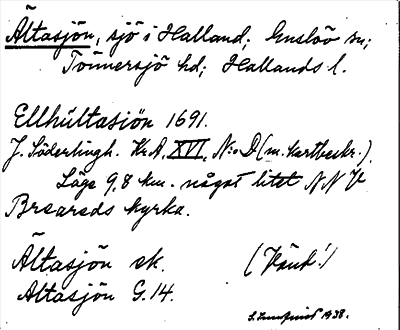 Ältasjön, sjö i Halland; Enslöv sn;
Tönnersjö hd; Hallands l.
Ellhultasiön 1691.
J. Söderlingh. Kr.A, XVI, N:o D (m. kartbeskr.).
Läge 9,8 km. något litet NNV
Breareds kyrka.
Ältasjön ek. (Känt!)
Ältasjön G.14.
1938.